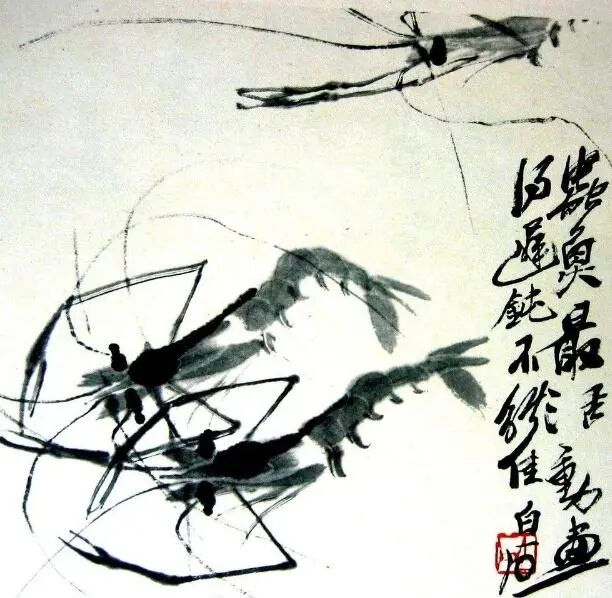 蟲魚最活動畫
得遲鈍不能佳
白石